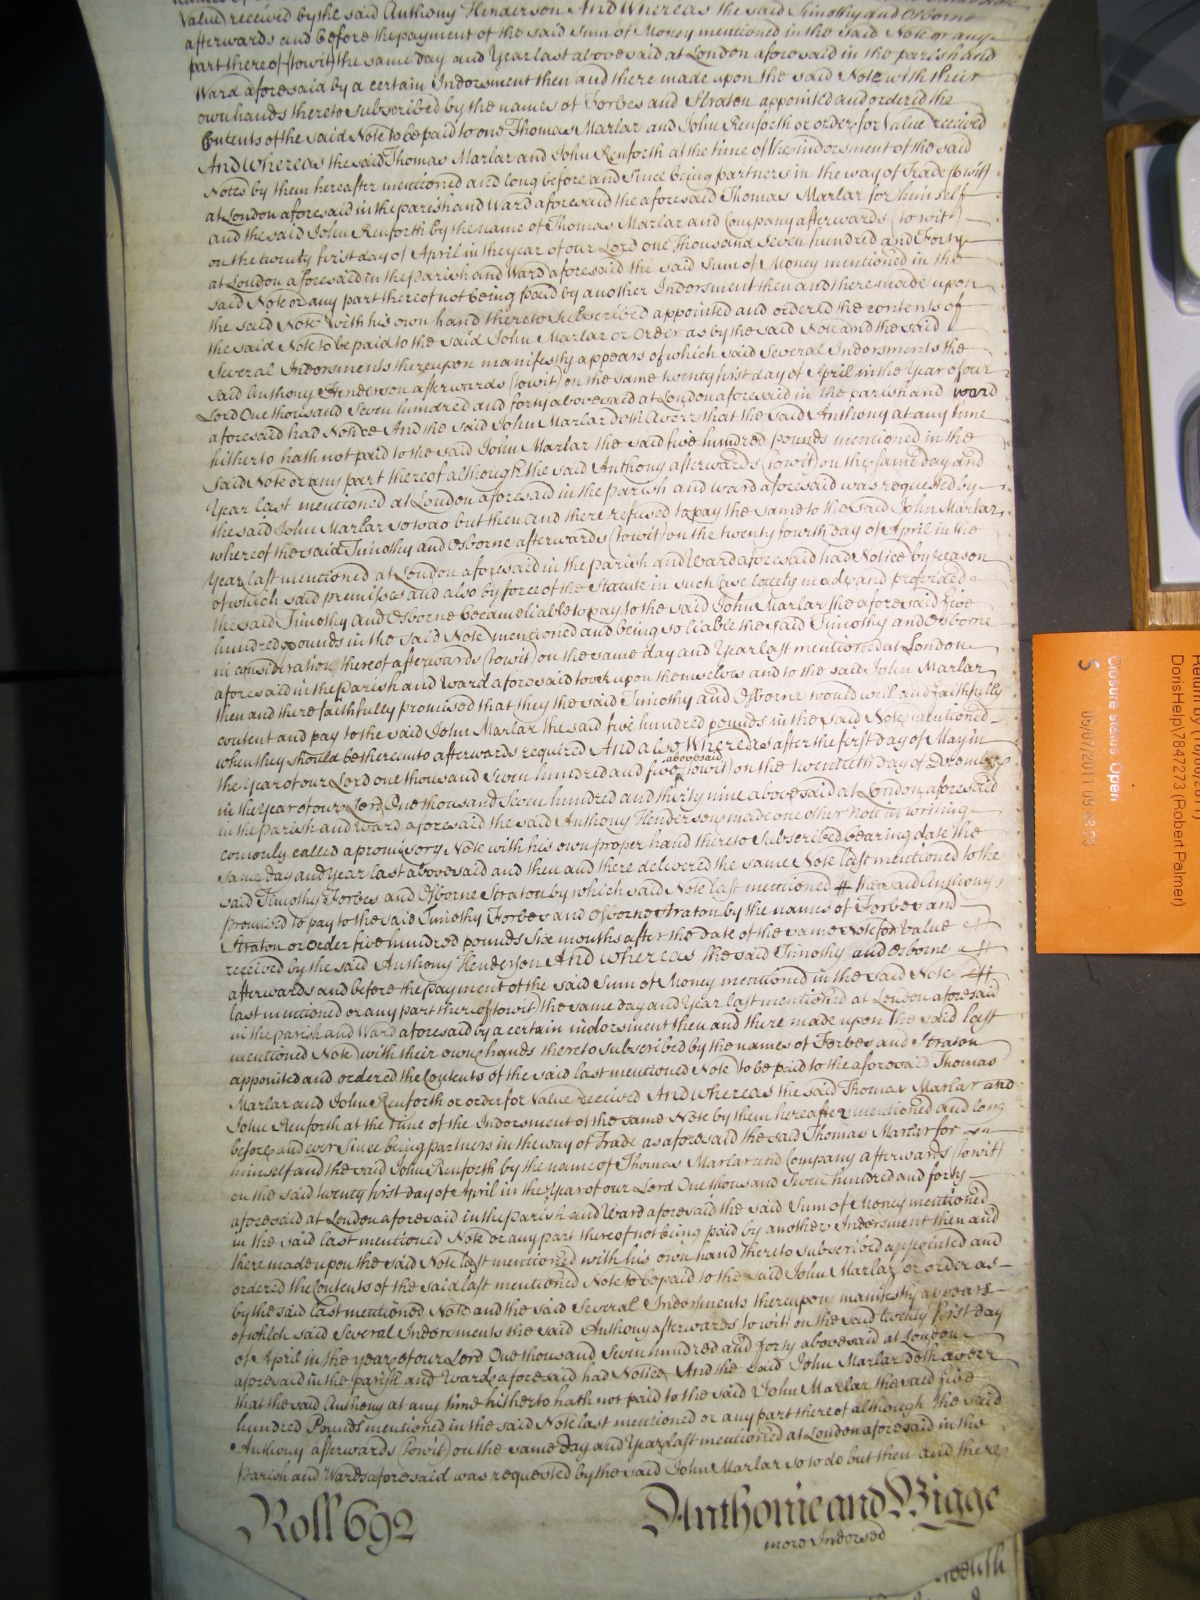 Value received by the said Anthony Henderson And Whereas the said Timothy and Osborne
afterwards and before the payment of the said Sum of Money mentioned in the said Note or any
part thereof (towit) the same day and Year last abovesaid at London aforesaid in the parish and
Ward aforesaid by a certain Indorsment then and there made upon the said Note with their
own hands thereto subscribed by the names of Forbes and Straton appointed and ordered the
Contents of the said Note to be paid to one Thomas Marlar and John Renforth or order for Value received
And Whereas the said Thomas Marlar and John Renforth at the time of the indorsment of the said
Notes by them hereafter mencioned and long before and since being partners in the way of Trade (towitt)
at London aforesaid in the parish and Ward aforesaid the aforesaid Thomas Marlar for himself
and the said John Renforth by the name of Thomas Marlar and Company afterwards (to wit)
on the twenty first day of April in the year of our Lord one Thousand Seven hundred and Forty
at London aforesaid in the Parish and Ward aforesaid the said Sum of Money mentioned in the
said Note or any part thereof not being paid by another Indorsment then and there made upon
the said Note with his own hand thereto Subscribed appointed and ordered the contents of
the said Note to be paid to the said John Marlar or Order as by the said Note and the said
Several Indorsments thereupon manifestly appears of which said Several Indorsments the
said Anthony Henderson afterwards (towit) on the same twenty first day of April in the Year of our
Lord One thousand Seven hundred and forty abovesaid at London aforesaid in the parish and ward
aforesaid had Notice And the said John Marlar doth averr that the said Anthony at any time
hitherto hath not paid to the said John Marlar the said five hundred pounds mentioned in the
said Note or any part thereof although the said Anthony afterwards (towit) on the same day and
Year last mentioned at London aforesaid in the Parish and ward aforesaid was requested by
the said John Marlar so to do but then and there refused to pay the same to the said John Marlar
whereof the said Timothy and Osborne afterwards (towit) on the twenty fourth day of April in the
Year last mentioned at London aforesaid in the parish and Ward aforesaid had Notice by reason
of which said premisses and also by force of the Statute in such case lately made and provided
the said Timothy and Osborne became liable to pay to the said John Marlar the aforesaid five
hundred pounds in the said Note mentioned and being so liable the said Timothy and Osborne
in consideration thereof afterwards (towit) on the same day and Year last mentioned at London
aforesaid in the Parish and Ward aforesaid took upon themselves and to the said John Marlar
then and there faithfully promised that they the said Timothy and Osborne would well and faithfully
content and pay to the said John Marlar the said five hundred pounds in the said Note mentioned
when they should be thereunto afterwards required And also Whereas after the first day of May in
the Year of our Lord one thousand Seven hundred and five abovesaid (towit) on the twentieth day of
in the Year of our Lord One thousand Seven hundred and thirty nine abovesaid at London aforesaid
in the parish and Ward aforesaid the said Anthony Henderson made one other Note in writing
comonly called a promissory Note with his own proper hand thereto Subscribed bearing date the
same day and Year last abovesaid and then and there delivered the same Note last mentioned to the
said Timothy Forbes and Osborne Straton by which said Note last mentioned # the said Anthony
promised to pay to the said Timothy Forbes and Osborne Straton by the names of Forbes and
Straton or order five hundred pounds Six months after the date of the same Note for Value
received by the said Anthony Henderson And whereas the said Timothy and Osborne
afterwards and before the payment of the said Sum of Money mentioned in the said Note
last mentioned or any part thereof (towit) the same day and Year last mentioned at London aforesaid
in the parish and Ward aforesaid by a certain indorsment then and there made upon the said last
mentioned Note with their own hands thereto subscribed by the names of Forbes and Straton
appointed and ordered the Contents of the said last mentioned Note to be paid to the aforesaid Thomas
Marlar and John Renforth or order for Value received And Whereas the said Thomas Marlar and
John Renforth at the time of the Indorsment of the same Note by them hereafter mentioned and long
before and ever Since being partners in the way of Trade as aforesaid the said Thomas Marlar for
himself and the said John Renforth by the name of Thomas Marlar and Company afterwards (towit)
on the said twenty first day of April in the Year of our Lord One thousand Seven hundred and forty
aforesaid at London aforesaid in the parish and Ward aforesaid the said Sum of Money mentioned
in the said last mentioned Note or any part thereof not being paid by another Indorsment then and
there made upon the said Note last mentioned with his own hand thereto subscribed appointed and
ordered the Contents of the said last mentioned Note to be paid to the said John Marlar or order as
by the said last mentioned Note and the said Several Indorsments thereupon manifestly appears
of which said Several Indorsments the said Anthony afterwards to wit on the said twenty first day
of April in the year of our Lord One thousand Seven hundred and forty abovesaid at London
aforesaid in the Parish and Ward aforesaid had Notice And the said John Marlar doth averr
that the said Anthony at any time hitherto hath not paid to the said John Marlar the said five
hundred Pounds mentioned in the said Note last mentioned or any part thereof although the said
Anthony afterwards (towit) on the same Day and Year last mentioned at London aforesaid in the
Parish and Ward aforesaid was requested by the said John Marlar so to do but then and there
Roll 692
Anthonie and Bigge
more Indorsed
Closure status Open
05/07/2011 09:28:23
S
DorisHelp\7847273 (Robert Palmer)